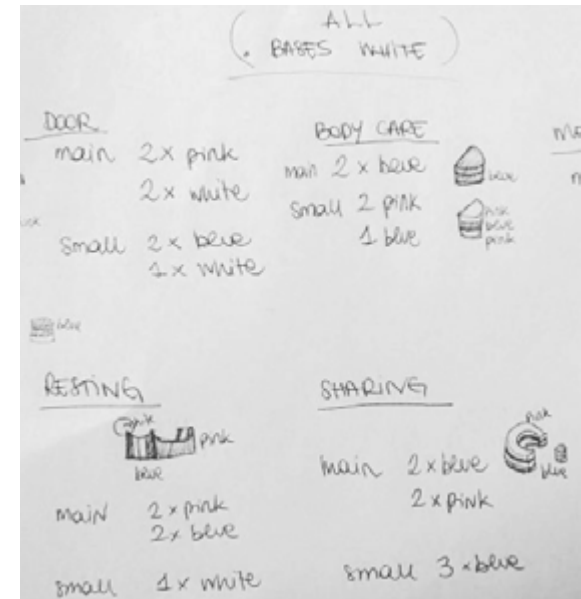 ALL
(. BASES WHITE )
DOOR
main 2x pink
2x white
small 2x blue
1x white
blue
BODY CARE
main 2x blue
blue
small 2 pink
1 blue
pink
blue
pink
RESTING
pink
pink
blue
main 2x pink
2x blue
small 1x white
SHARING
pink
blue
main 2x blue
2x pink
small 3xblue